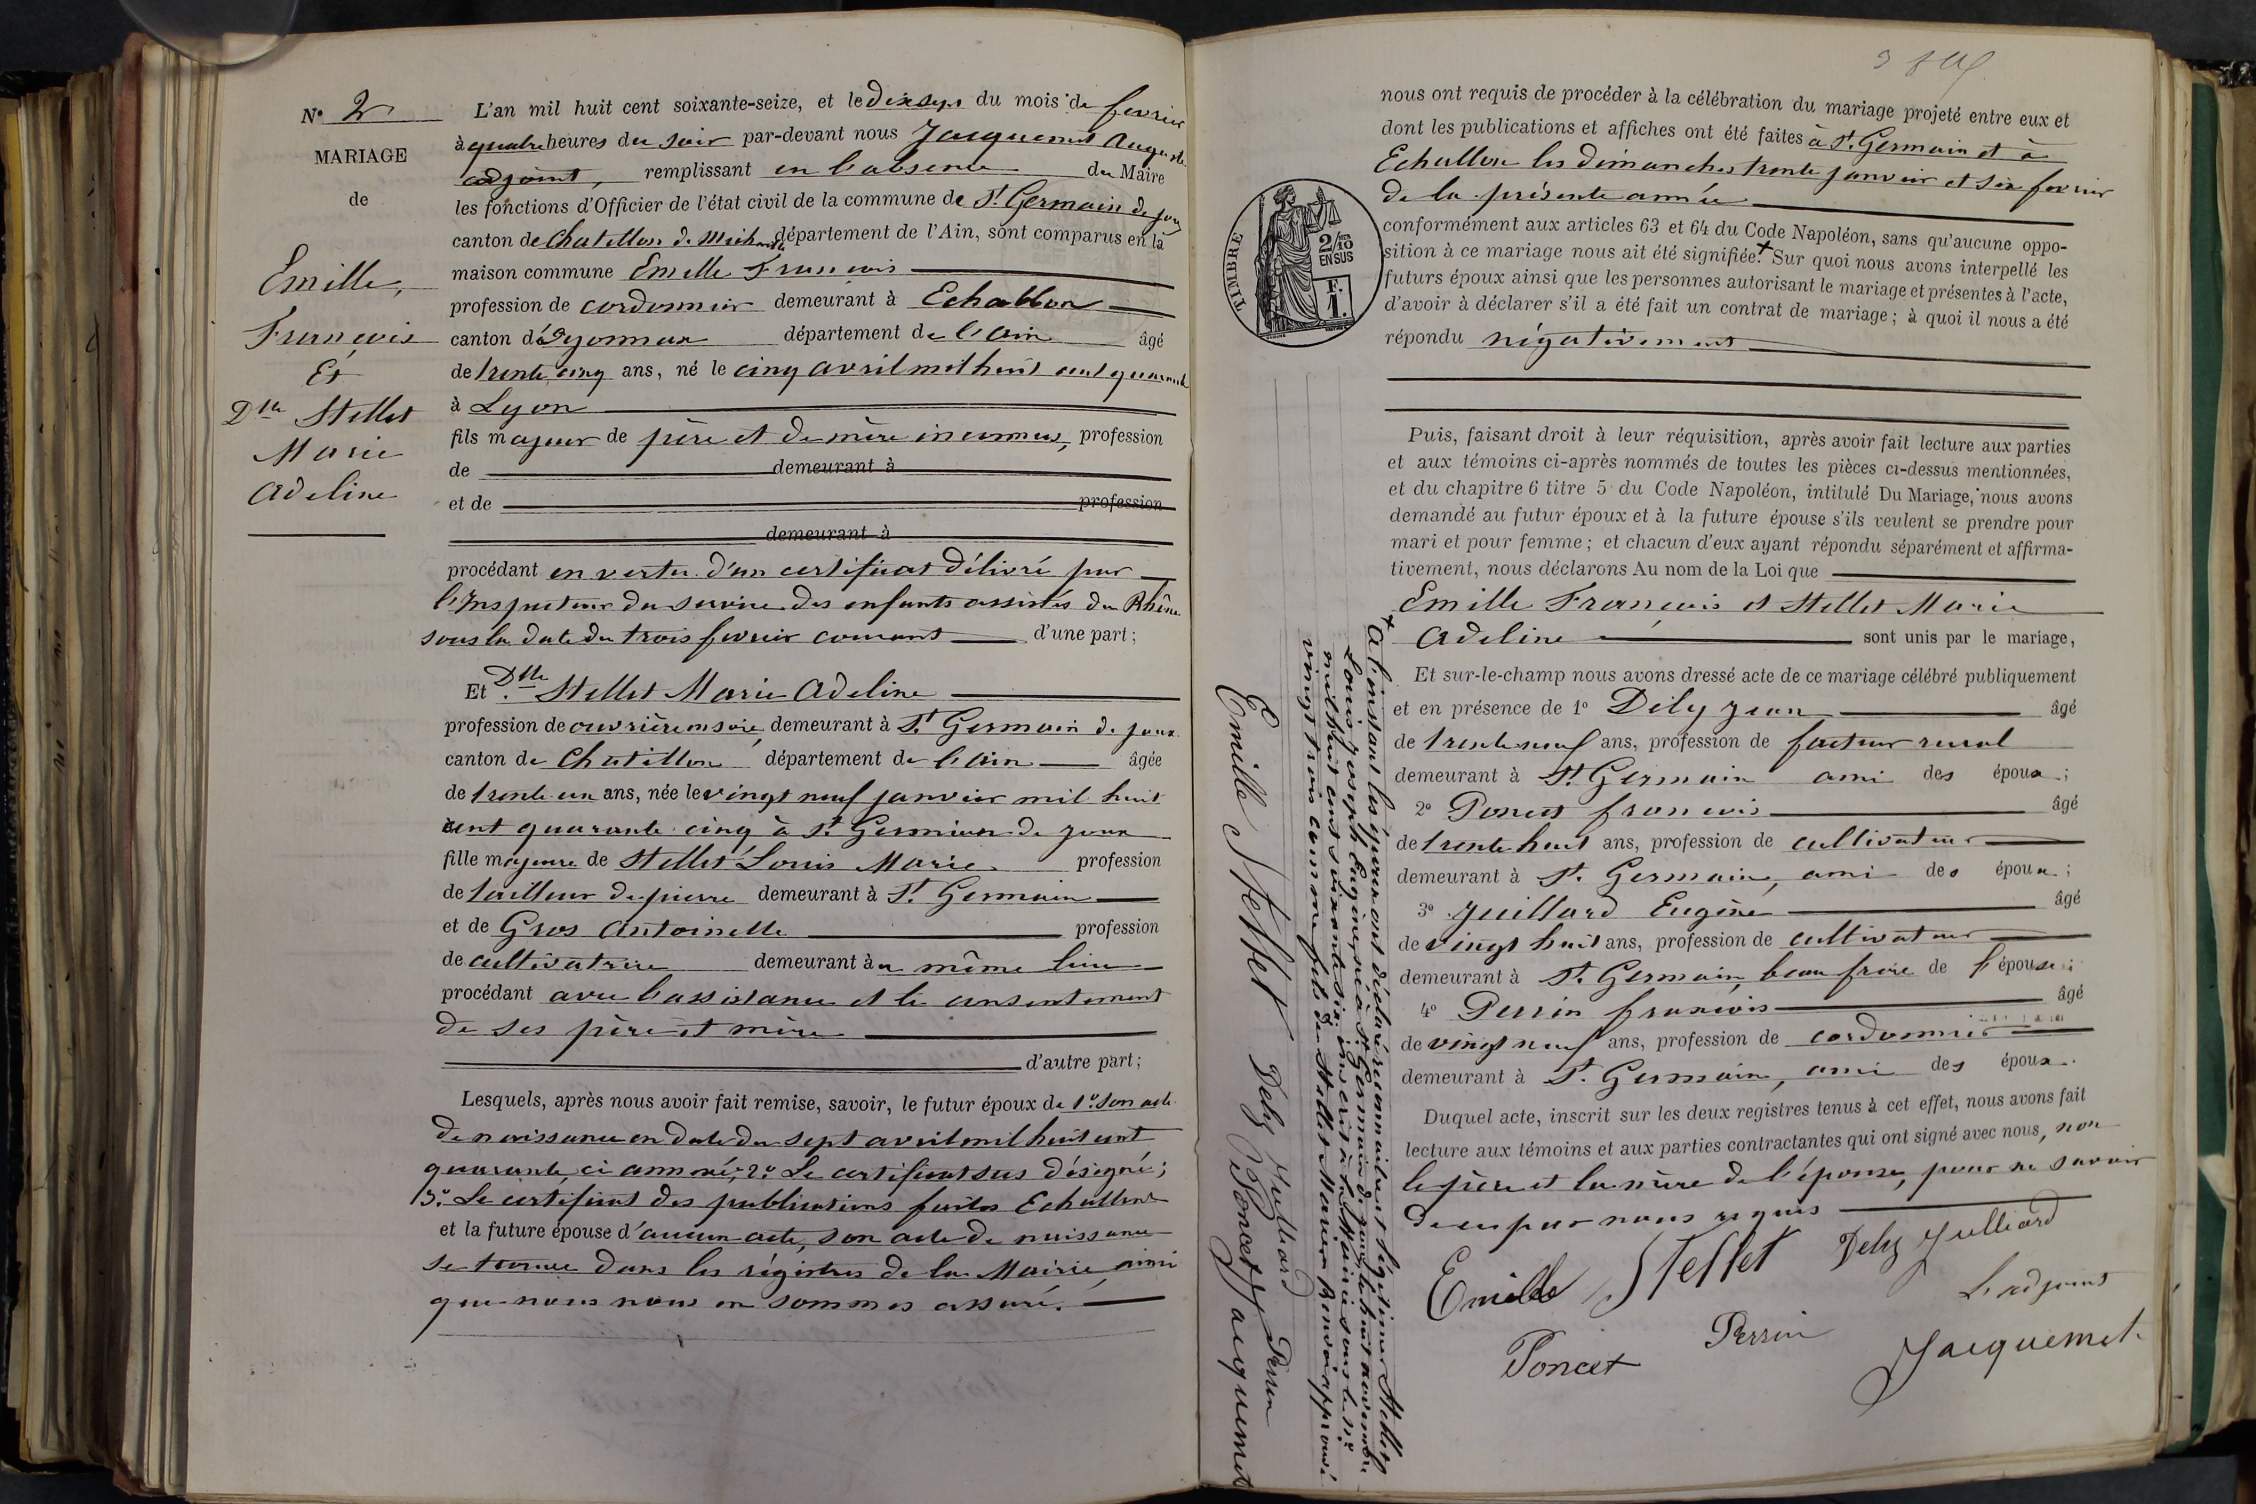 N° 2
MARIAGE
de
Emille,
François
Et
Dlle Stellet
Marie
Adeline
L'an mil huit cent soixante-seize, et le Dix sept du mois de fevrier
à quatre heures du soir par-devant nous Jacquemet Auguste
adjoint, remplissant en l'absence du Maire
les fonctions d'Officier de l'état civil de la commune de St. Germain de joux
canton de Chatillon de Michaille département de l'Ain, sont comparus en la
maison commune Emille François
profession de cordonnier demeurant à Echallon
canton d'Oyonnax département de l'ain âgé
de trente cinq ans, né le cinq avril mil huit cent quarante
à Lyon
fils majeur de père et de mère inconnus, profession
de demeurant à
et de profession
demeurant à
procédant en vertu d'un certificat délivré par
l'Inspecteur du service des enfants assistés du Rhône
sous la date du trois fevrier courant d'une part;
Et Dlle Stellet Marie Adeline
profession de ouvrière en soie, demeurant à St. Germain de joux
canton de Chatillon département de l'ain âgée
de trente un ans, née le vingt neuf janvier mil huit
cent quarante cinq à St. Germain de joux
fille majeure de Stellet Louis Marie profession
de tailleur de pierre demeurant à St. Germain
et de Gros Antoinette profession
de cultivatrice demeurant au même lieu
procédant avec l'assistance et le consentement
de ses père et mère
d'autre part;
Lesquels, après nous avoir fait remise, savoir, le futur époux de 1° Son acte
de naissance en date du sept avril mil huit cent
quarante, ci annexé; 2° Le certificat sus désigné;
3° Le certificat des publications faites Echallon
et la future épouse d'aucun acte, son acte de naissance
se trouve dans les régistres de la Mairie ainsi
que nous nous en sommes assuré.
nous ont requis de procéder à la célébration du mariage projeté entre eux et
dont les publications et affiches ont été faites à St. Germain et à
Echallon les dimanches trente janvier et six fevrier
de la présente année
conformément aux articles 63 et 64 du Code Napoléon, sans qu'aucune oppo-
sition à ce mariage nous ait été signifiée. + Sur quoi nous avons interpellé les
futurs époux ainsi que les personnes autorisant le mariage et présentes à l'acte,
d'avoir à déclarer s'il a été fait un contrat de mariage; à quoi il nous a été
répondu négativement
TIMBRE
2/10
EN SUS
F.
1.
Puis, faisant droit à leur réquisition, après avoir fait lecture aux parties
et aux témoins ci-après nommés de toutes les pièces ci-dessus mentionnées,
et du chapitre 6 titre 5 du Code Napoléon, intitulé Du Mariage, nous avons
demandé au futur époux et à la future épouse s'ils veulent se prendre pour
mari et pour femme; et chacun d'eux ayant répondu séparément et affirma-
tivement, nous déclarons Au nom de la Loi que
Emille François et Stellet Marie
Adeline sont unis par le mariage,
Et sur-le-champ nous avons dressé acte de ce mariage célébré publiquement
et en présence de 1° Dély Jean âgé
de trente neuf ans, profession de facteur rural
demeurant à St. Germain ami des époux;
2° Poncet françois âgé
de trente huit ans, profession de cultivateur
demeurant à St. Germain, ami des époux;
3° Juillard Eugène âgé
de vingt huit ans, profession de cultivateur
demeurant à St. Germain, beau frère de l'épouse;
4° Perrin françois âgé
de vingt neuf ans, profession de cordonnier
demeurant à St. Germain, ami des époux.
Duquel acte, inscrit sur les deux registres tenus à cet effet, nous avons fait
lecture aux témoins et aux parties contractantes qui ont signé avec nous, non
le père et la mère de l'épouse, pour ne savoir
de ce par nous requis
Emille Stellet Dely Julliard
L'adjoint
Poncet Perrin Jacquemet
+ A l'instant les époux ont déclaré reconnaitre et légitimer Stellet
Louis Joseph Eugène, né à St. Germain de joux, le huit novembre
mil huit cent soixante six, inscrit à la Mairie sous le
vingt trois comme fils de Stellet Marie. Renvoi approuvé.
Emille Stellet Dely Julliard Perrin
Poncet Jacquemet